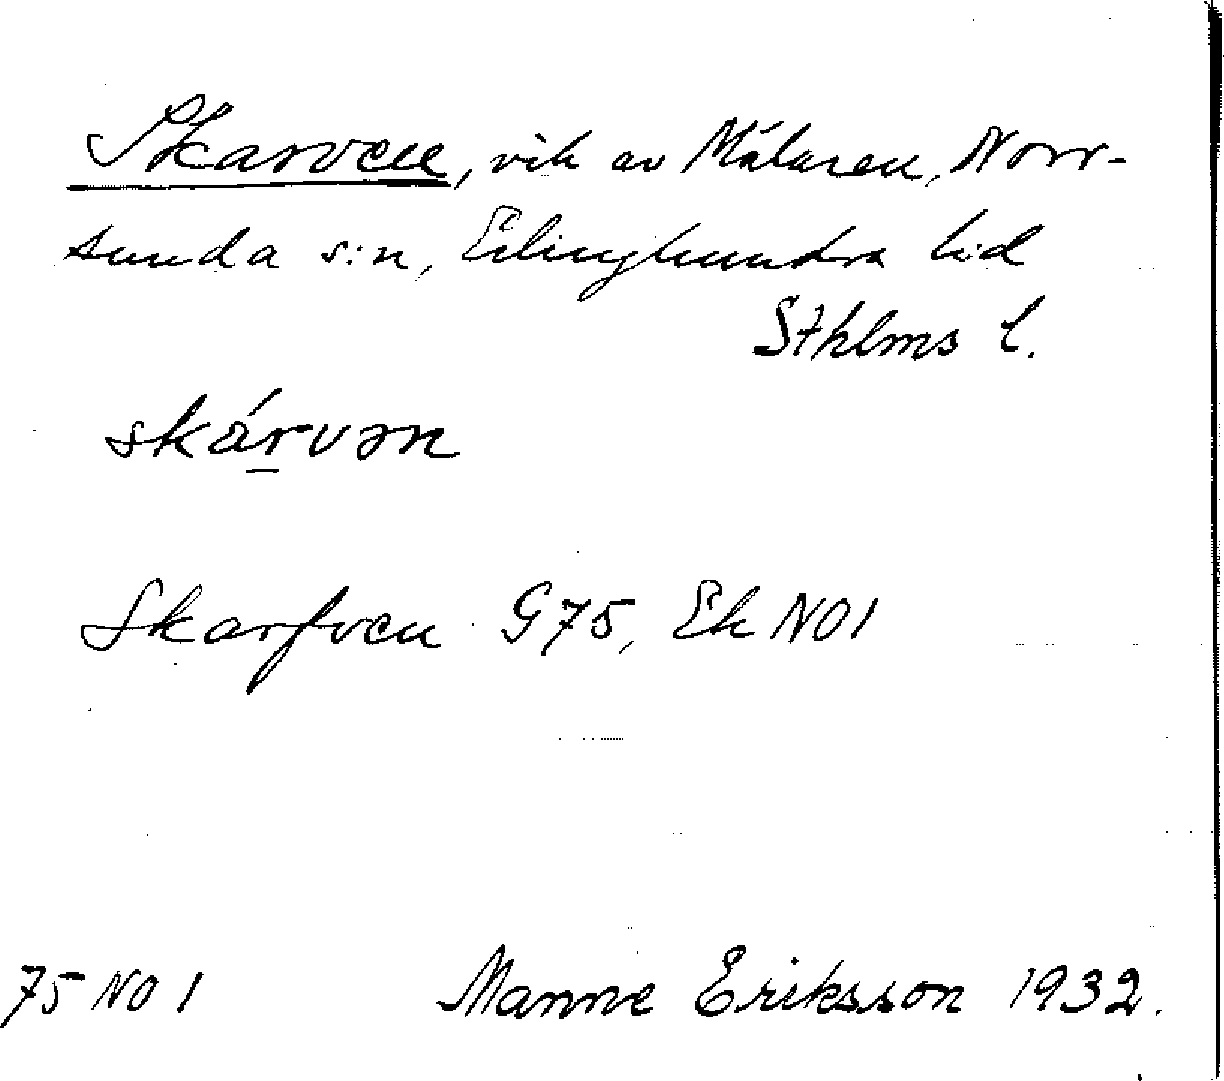 Skarven, vik av Mälaren, Norr-
sunda s:n, Erlinghundra hd
Sthlms l.
skárvən
Skarfven G75, Ek NO1
75 NO 1 Manne Eriksson 1932.